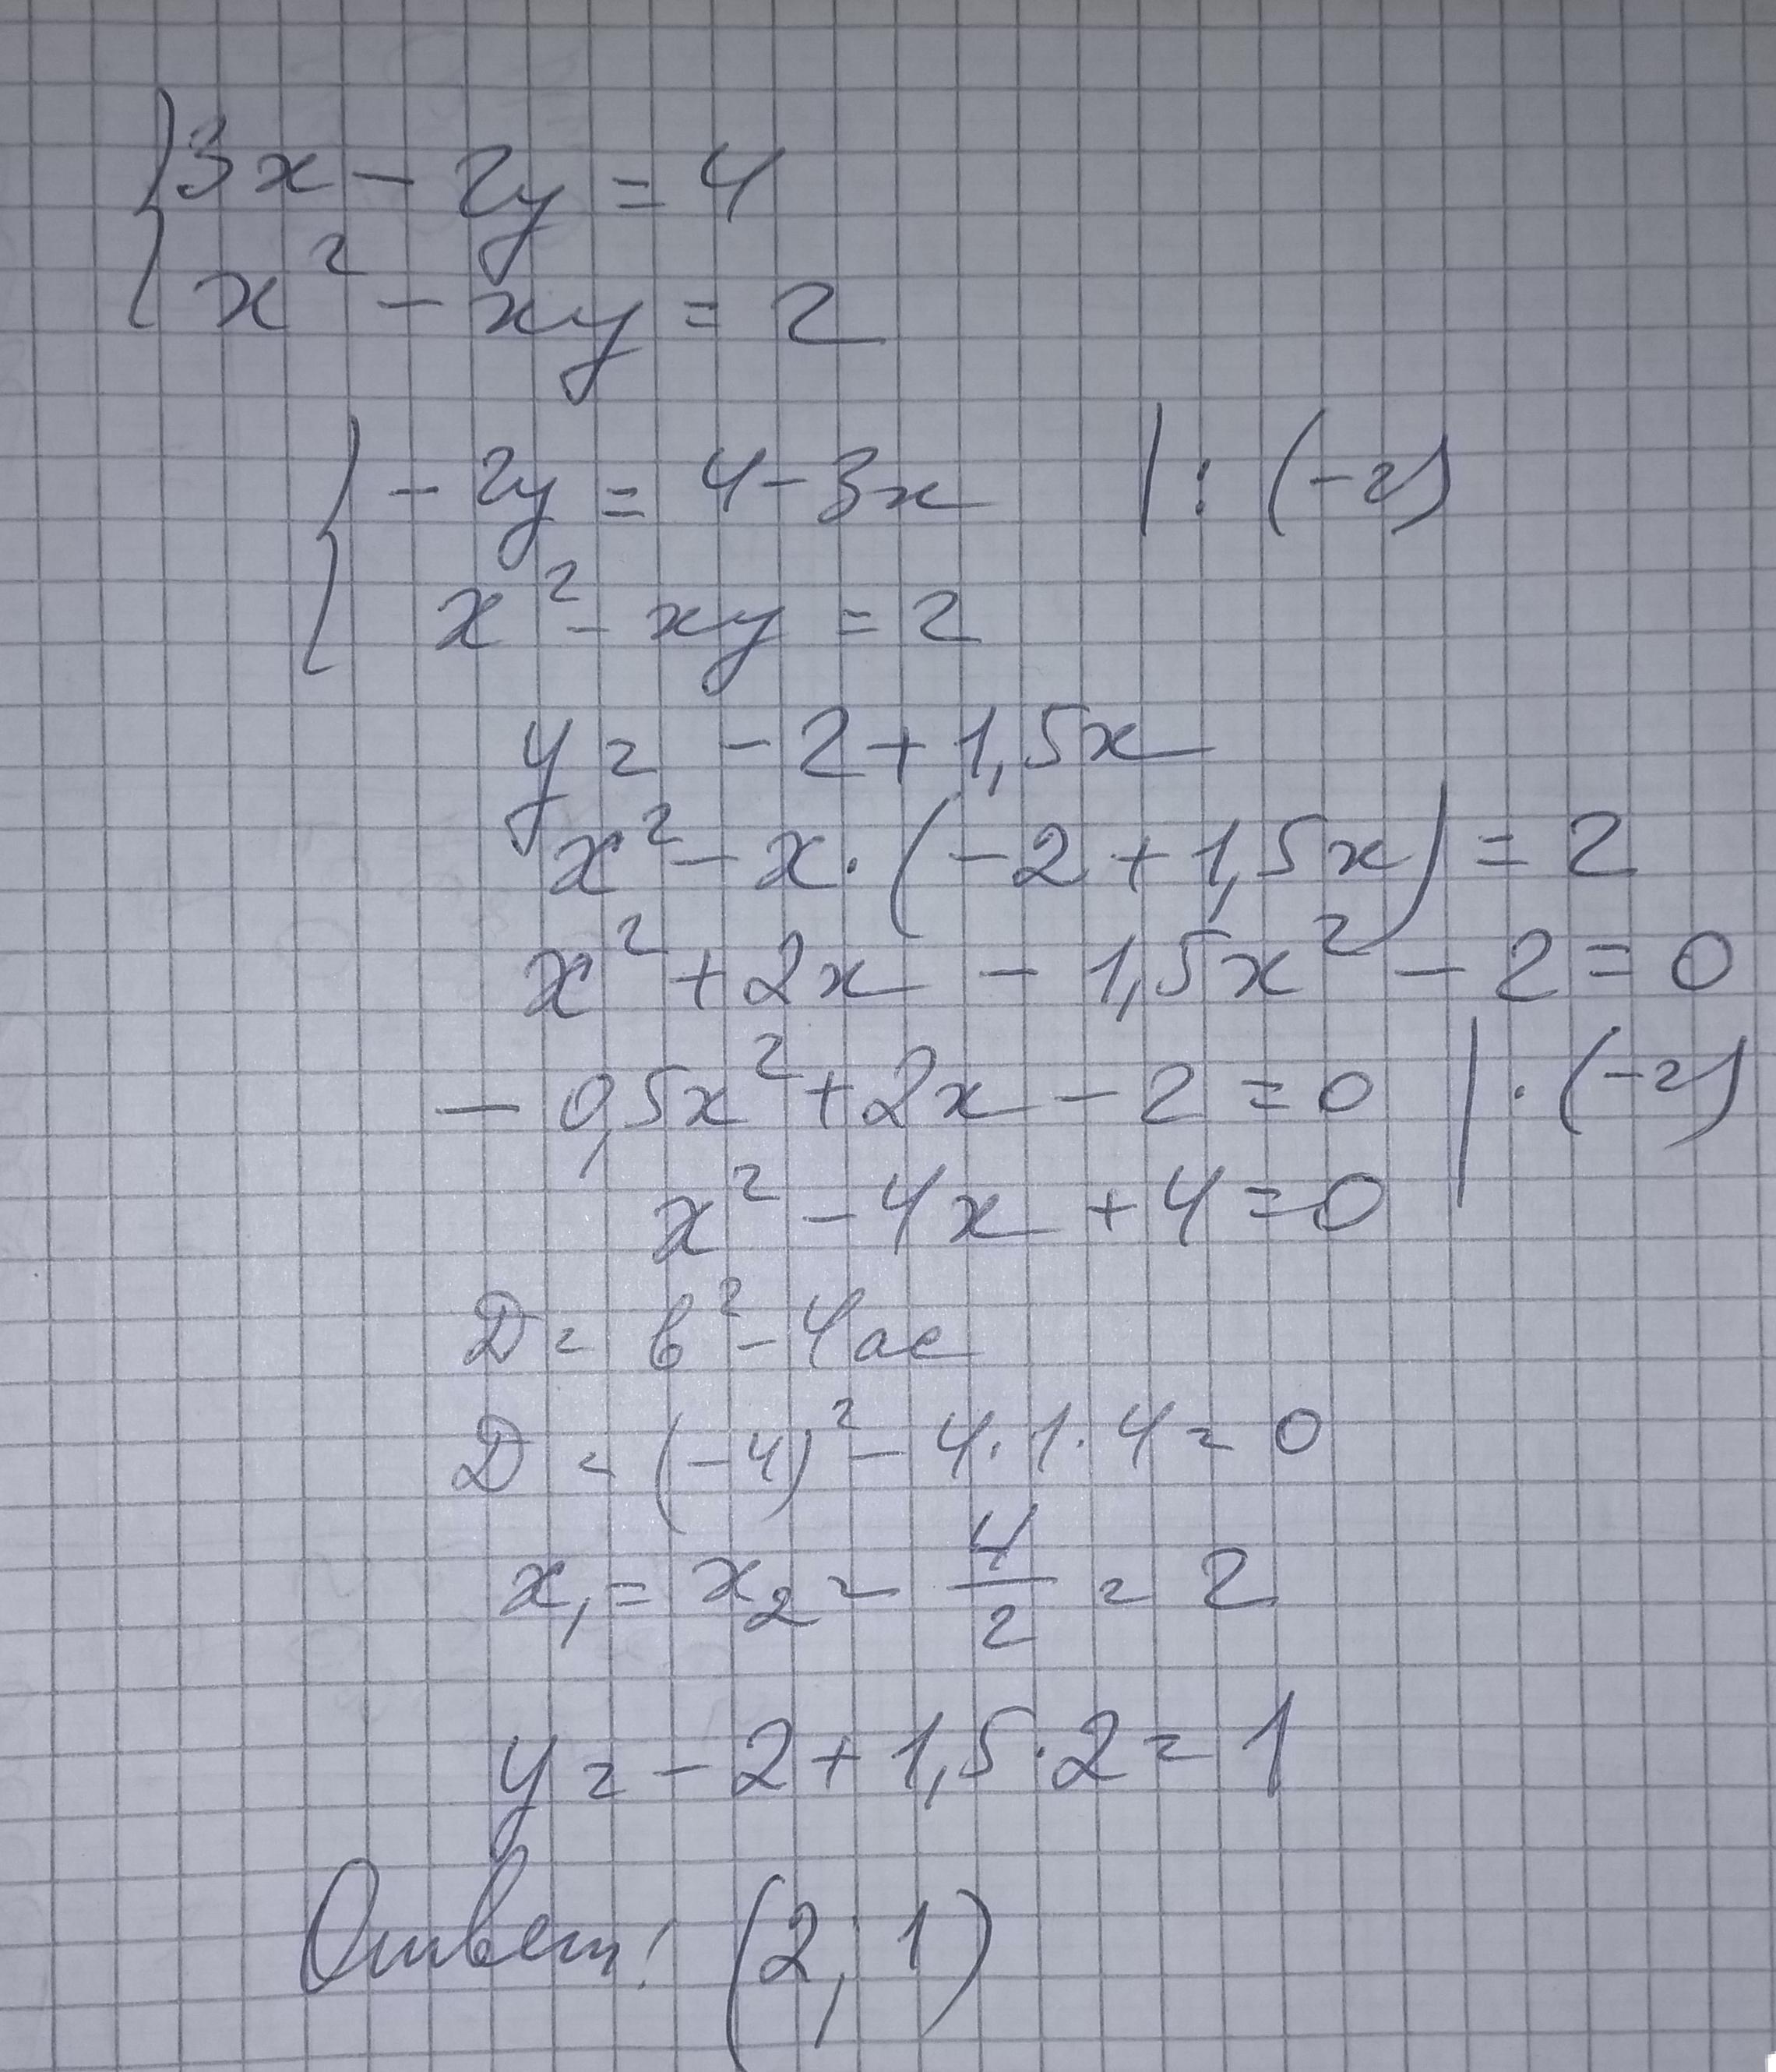 {3x - 2y = 4
x² - xy = 2
{-2y = 4 - 3x |: (-2)
x² - xy = 2
y = -2 + 1,5x
x² - x · (-2 + 1,5x) = 2
x² + 2x - 1,5x² - 2 = 0
- 0,5x² + 2x - 2 = 0 | · (-2)
x² - 4x + 4 = 0
D = b² - 4ac
D = (-4)² - 4 · 1 · 4 = 0
x₁ = x₂ = 4/2 = 2
y = -2 + 1,5 · 2 = 1
Ответ: (2; 1)